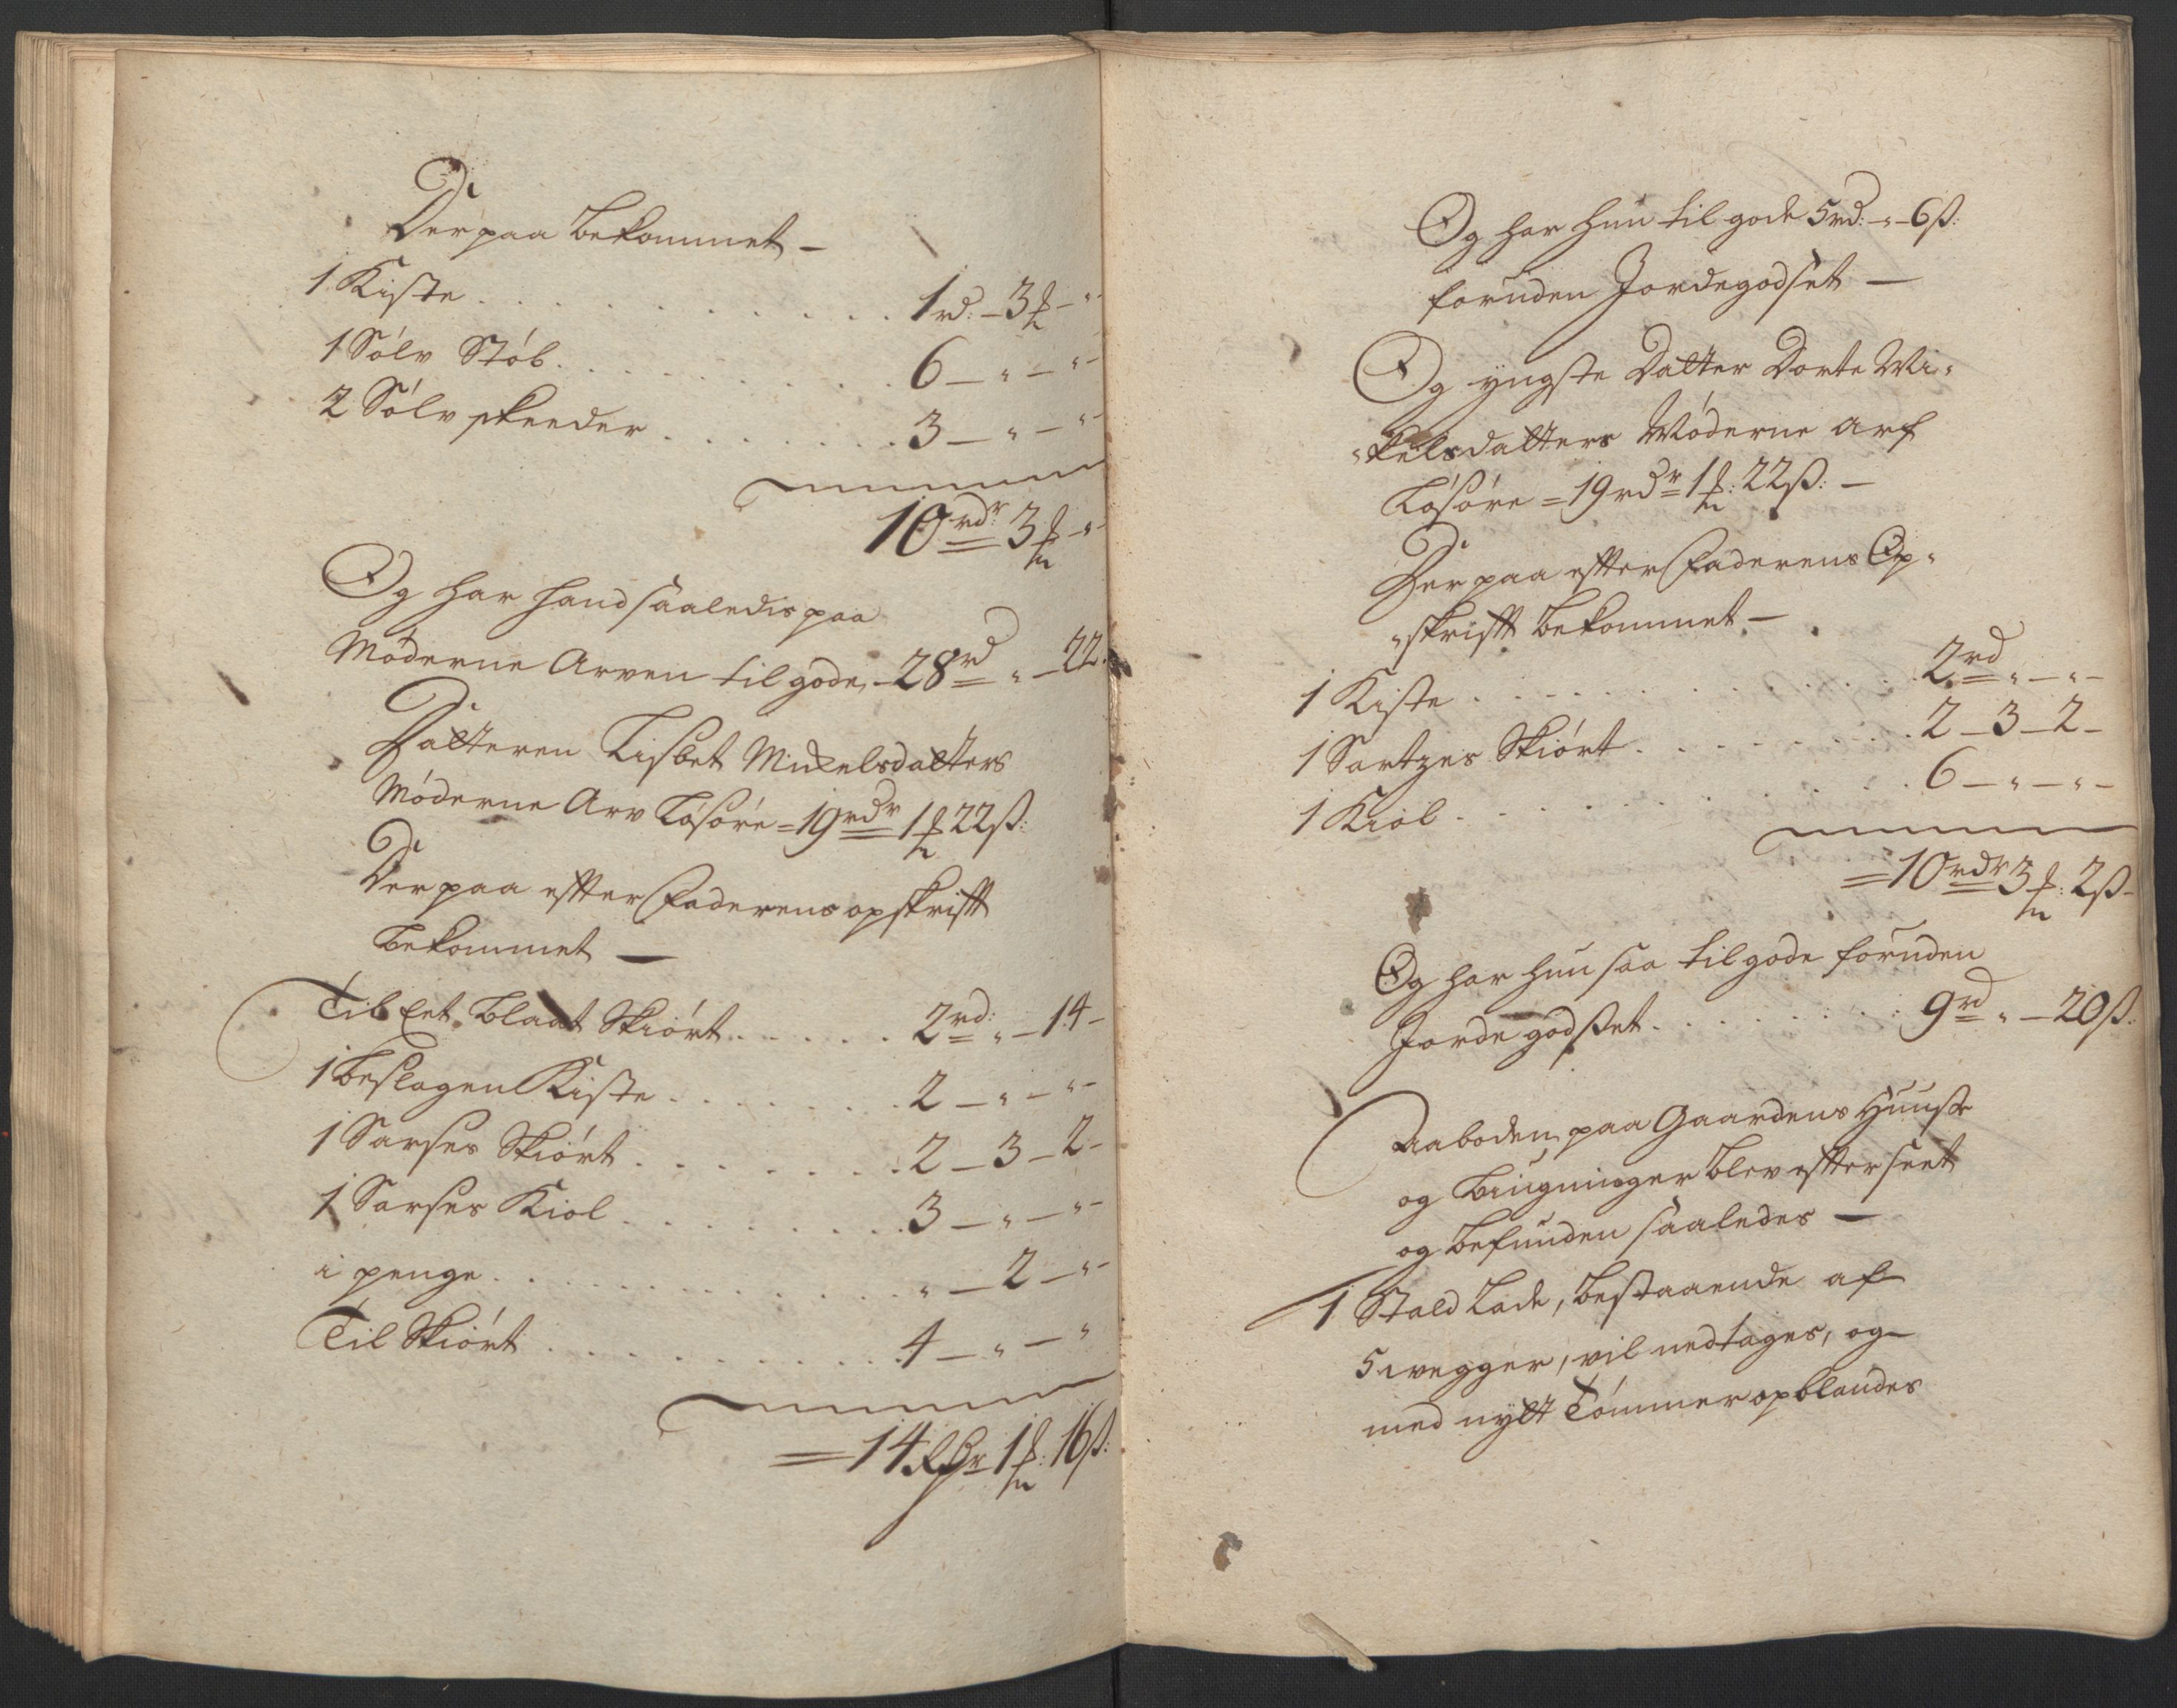 Der paa bekommet –
1 Kiste . . . . . . . . . 1 rd: – 3 ₰ – "
1 Sölv Stöb . . . . . . . . . 6 – " – " –
2 Sölv skeeder . . . . . . . . 3 – " – " –
10 rdr 3 ₰ – "
Og har hand saaledis paa
Möderne Arven til gode, – 28 rd " – 22
Datteren Lisbet Mickelsdatters
Möderne Arv Lösöre = 19 rdr 1 ₰ 22 ß:
Der paa efter Faderens opskrift
bekommet –
Til Eet blaat Skiört . . . . . 2 rd: " – 14 –
1 beslagen Kiste . . . . . . . 2 – " – " –
1 Sarses Skiört . . . . . . . 2 – 3 – 2 –
1 Sarses Kiol . . . . . . . . 3 – " – " –
i penge . . . . . . . . . . " – 2 – " –
Til Skiört . . . . . . . . . 4 – " – "
= 14 Rdr 1 ₰: 16 ß:
Og har hun til gode 5 rd: – " – 6 ß:
foruden Jordegodset –
Og yngste Datter Dorte Mi-
-kelsdatters Möderne arf
Lösöre = 19 rdr 1 ₰: 22 ß: –
Der paa efter Faderens Op-
-skrift bekommet –
1 Kiste . . . . . . . . . . 2 rd " – " –
1 Sartzes Skiört . . . . . . . 2 – 3 – 2 –
1 Kiol . . . . . . . . . . 6 – " – " –
= 10 rdr 3 ₰: 2 ß –
Og har hun saa til gode foruden
Jorde godset . . . . . . . . 9 rd " – 20 ß:
Aaboden paa Gaardens Huuse
og bügninger blev efterseet
og befunden saaledes –
1 Stald Lade, bestaaende af
5 vegger, vil nedtages, og
med nÿtt Tömmer opblandes